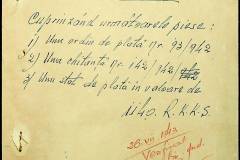 Cuprinzând următoarele piese:
1) Un ordin de plată nr. 93/942
2) Una chitanță nr. 142/942
3) Un stat de plată în valoare de
R.K.K.S.
26.VII.1943